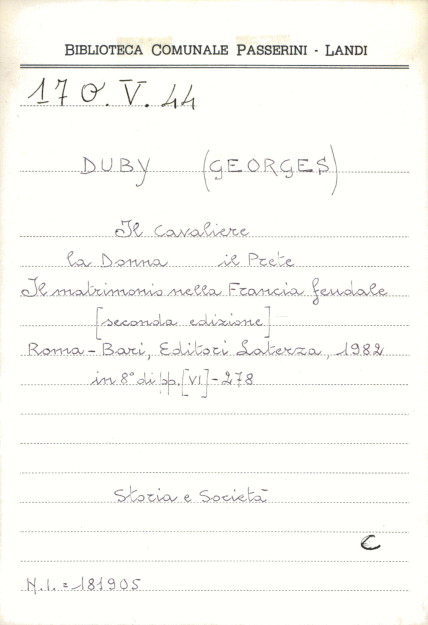 BIBLIOTECA COMUNALE PASSERINI - LANDI
170.V.44
DUBY (GEORGES)
Il Cavaliere
la Donna il Prete
Il matrimonio nella Francia feudale
[seconda edizione]
Roma-Bari, Editori Laterza, 1982
in 8° di pp. [VI]-278
Storia e Società
C
N.I. = 181905